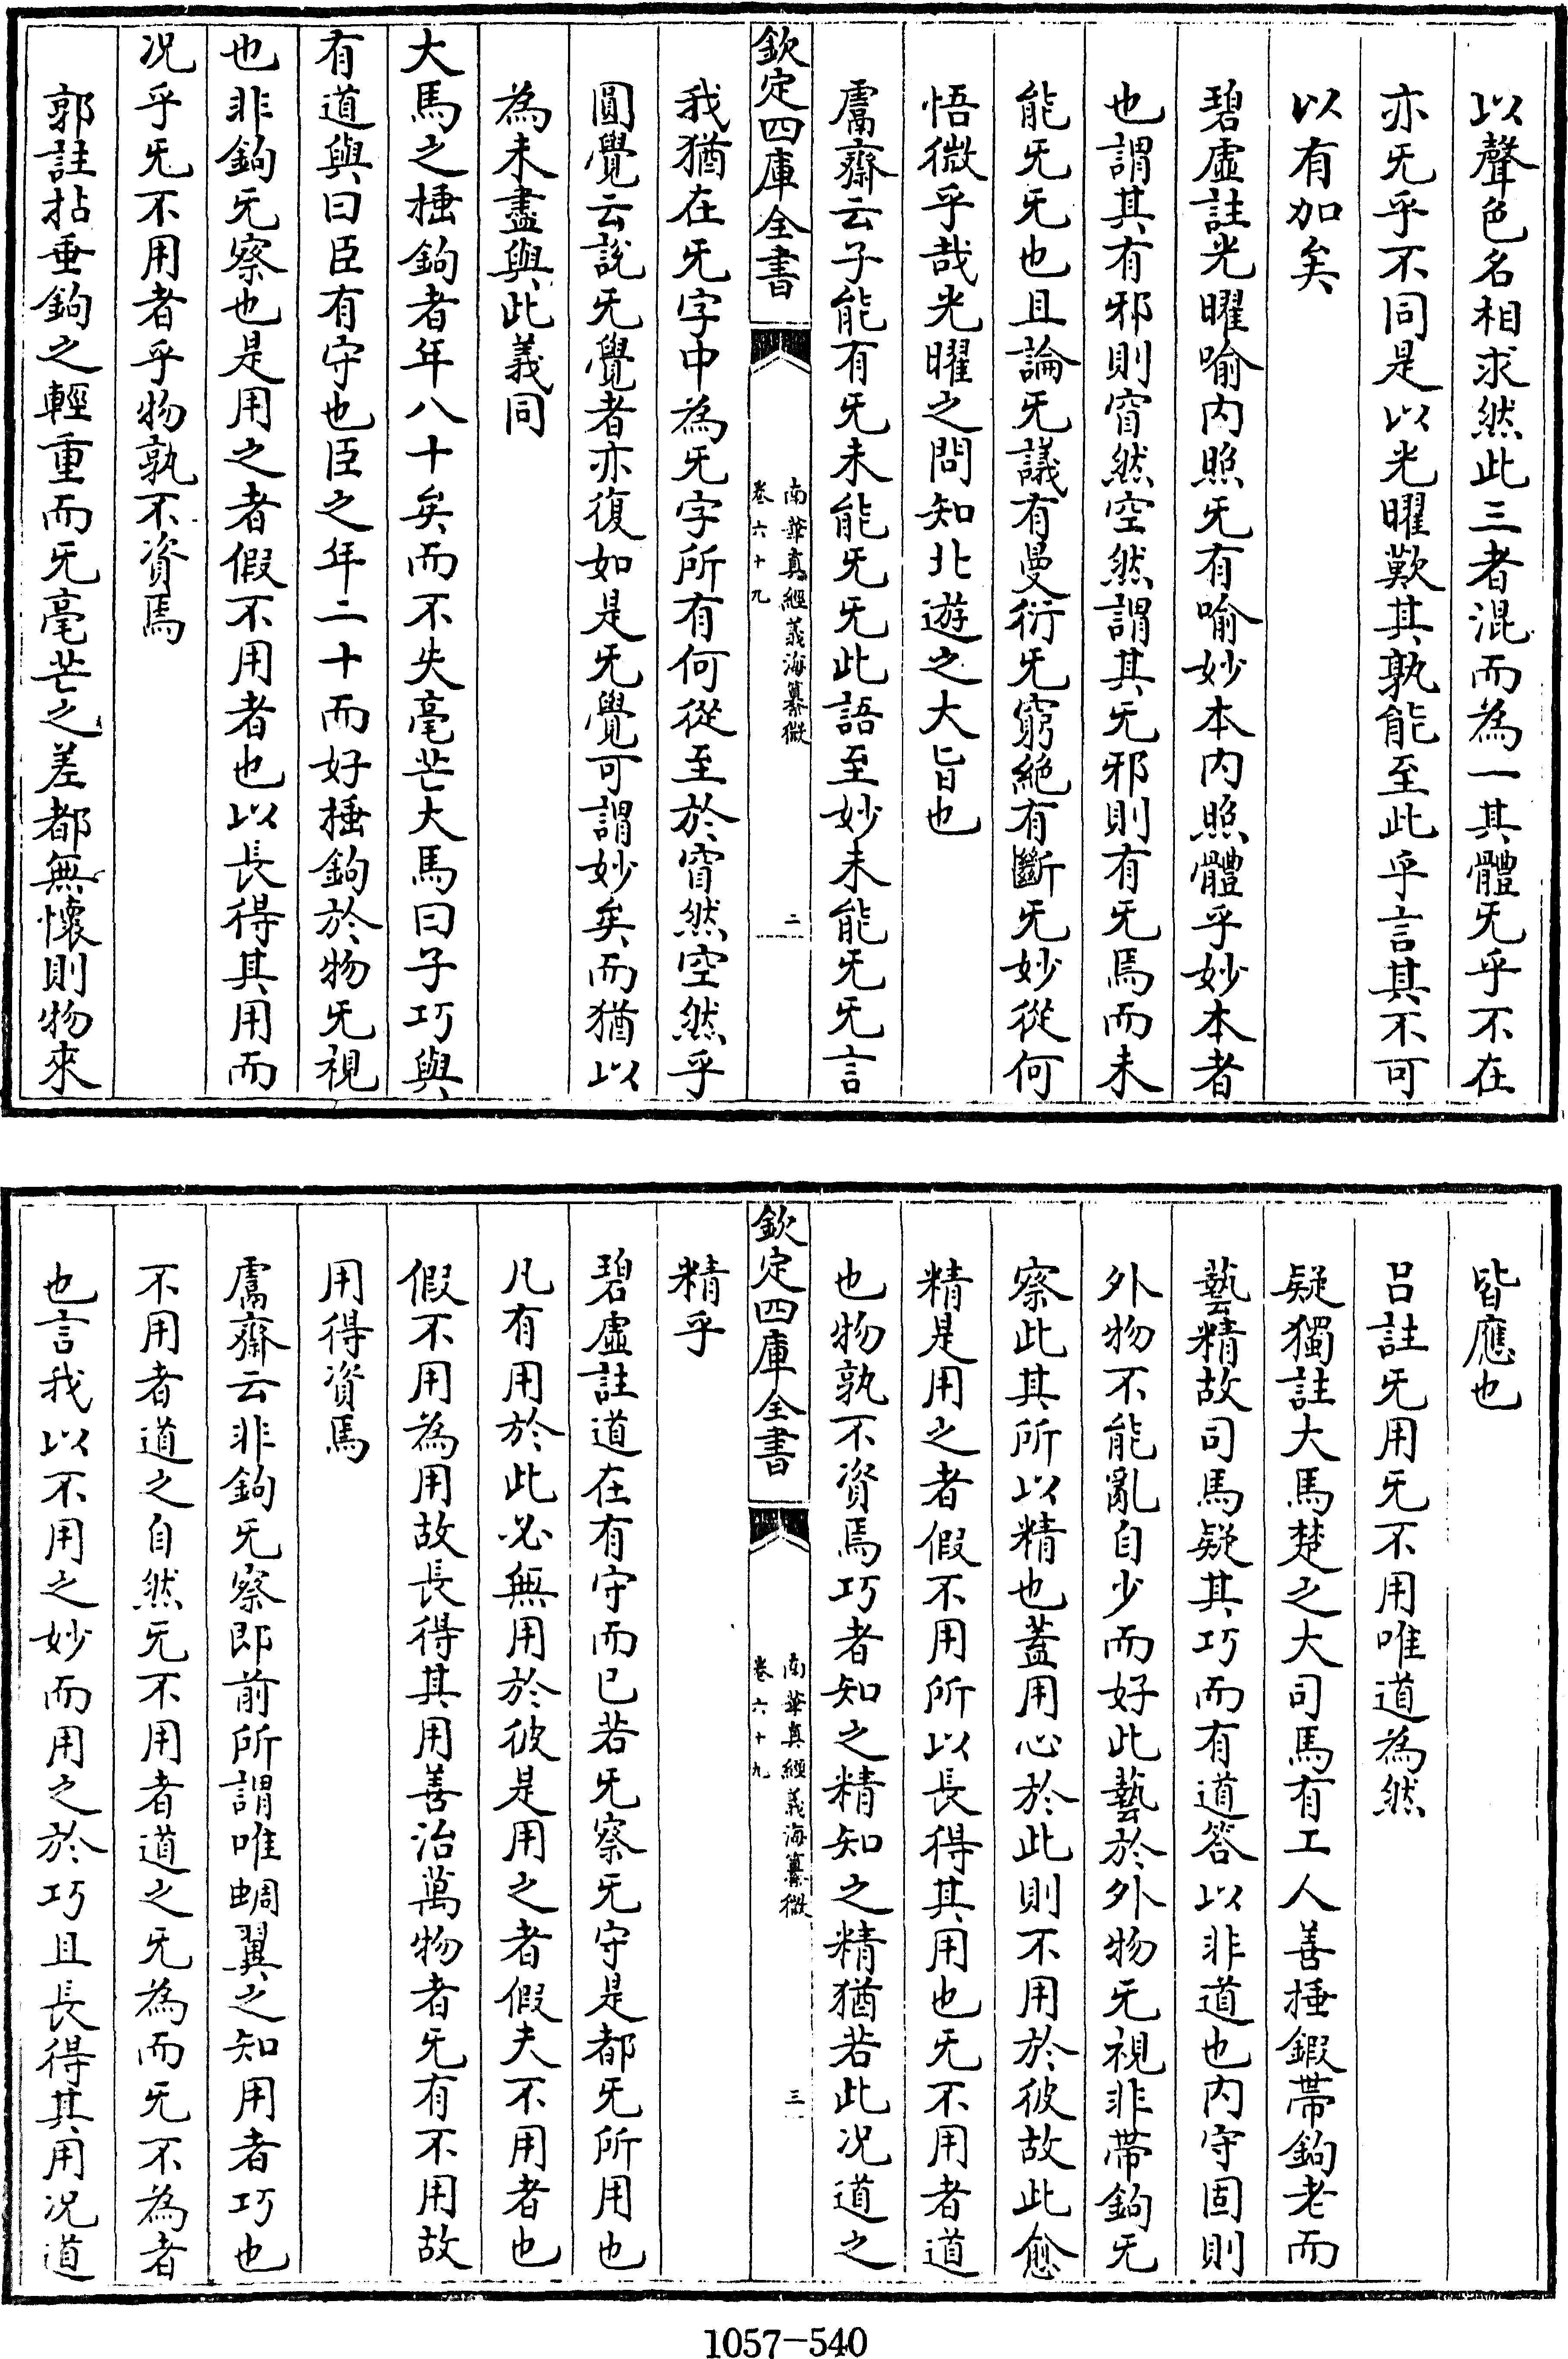 以聲色名相求然此三者混而為一其體旡乎不在
亦旡乎不同是以光曜歎其孰能至此乎言其不可
以有加矣
碧虛註光曜喻内照旡有喻妙本内照體乎妙本者
也謂其有邪則窅然空然謂其旡邪則有旡焉而未
能旡旡也且論旡議有曼衍旡窮絶有斷旡妙從何
悟微乎哉光曜之問知北遊之大旨也
鬳齋云子能有旡未能旡旡此語至妙未能旡旡言
欽定四庫全書
南華真經義海纂微
卷六十九
二
我猶在旡字中為旡字所有何從至於窅然空然乎
圓覺云說旡覺者亦復如是旡覺可謂妙矣而猶以
為未盡與此義同
大馬之捶鉤者年八十矣而不失毫芒大馬曰子巧與
有道與曰臣有守也臣之年二十而好捶鉤於物旡視
也非鉤旡察也是用之者假不用者也以長得其用而
况乎旡不用者乎物孰不資焉
郭註拈垂鉤之輕重而旡毫芒之差都無懷則物來
皆應也
吕註旡用旡不用唯道為然
疑獨註大馬楚之大司馬有工人善捶鍜帶鉤老而
藝精故司馬疑其巧而有道答以非道也内守固則
外物不能亂自少而好此藝於外物旡視非帶鉤旡
察此其所以精也蓋用心於此則不用於彼故此愈
精是用之者假不用所以長得其用也旡不用者道
也物孰不資焉巧者知之精知之精猶若此况道之
欽定四庫全書
南華真經義海纂微
卷六十九
三
精乎
碧虛註道在有守而已若旡察旡守是都旡所用也
凡有用於此必無用於彼是用之者假夫不用者也
假不用為用故長得其用善治萬物者旡有不用故
用得資焉
鬳齋云非鉤旡察即前所謂唯蜩翼之知用者巧也
不用者道之自然旡不用者道之旡為而旡不為者
也言我以不用之妙而用之於巧且長得其用况道
1057-540